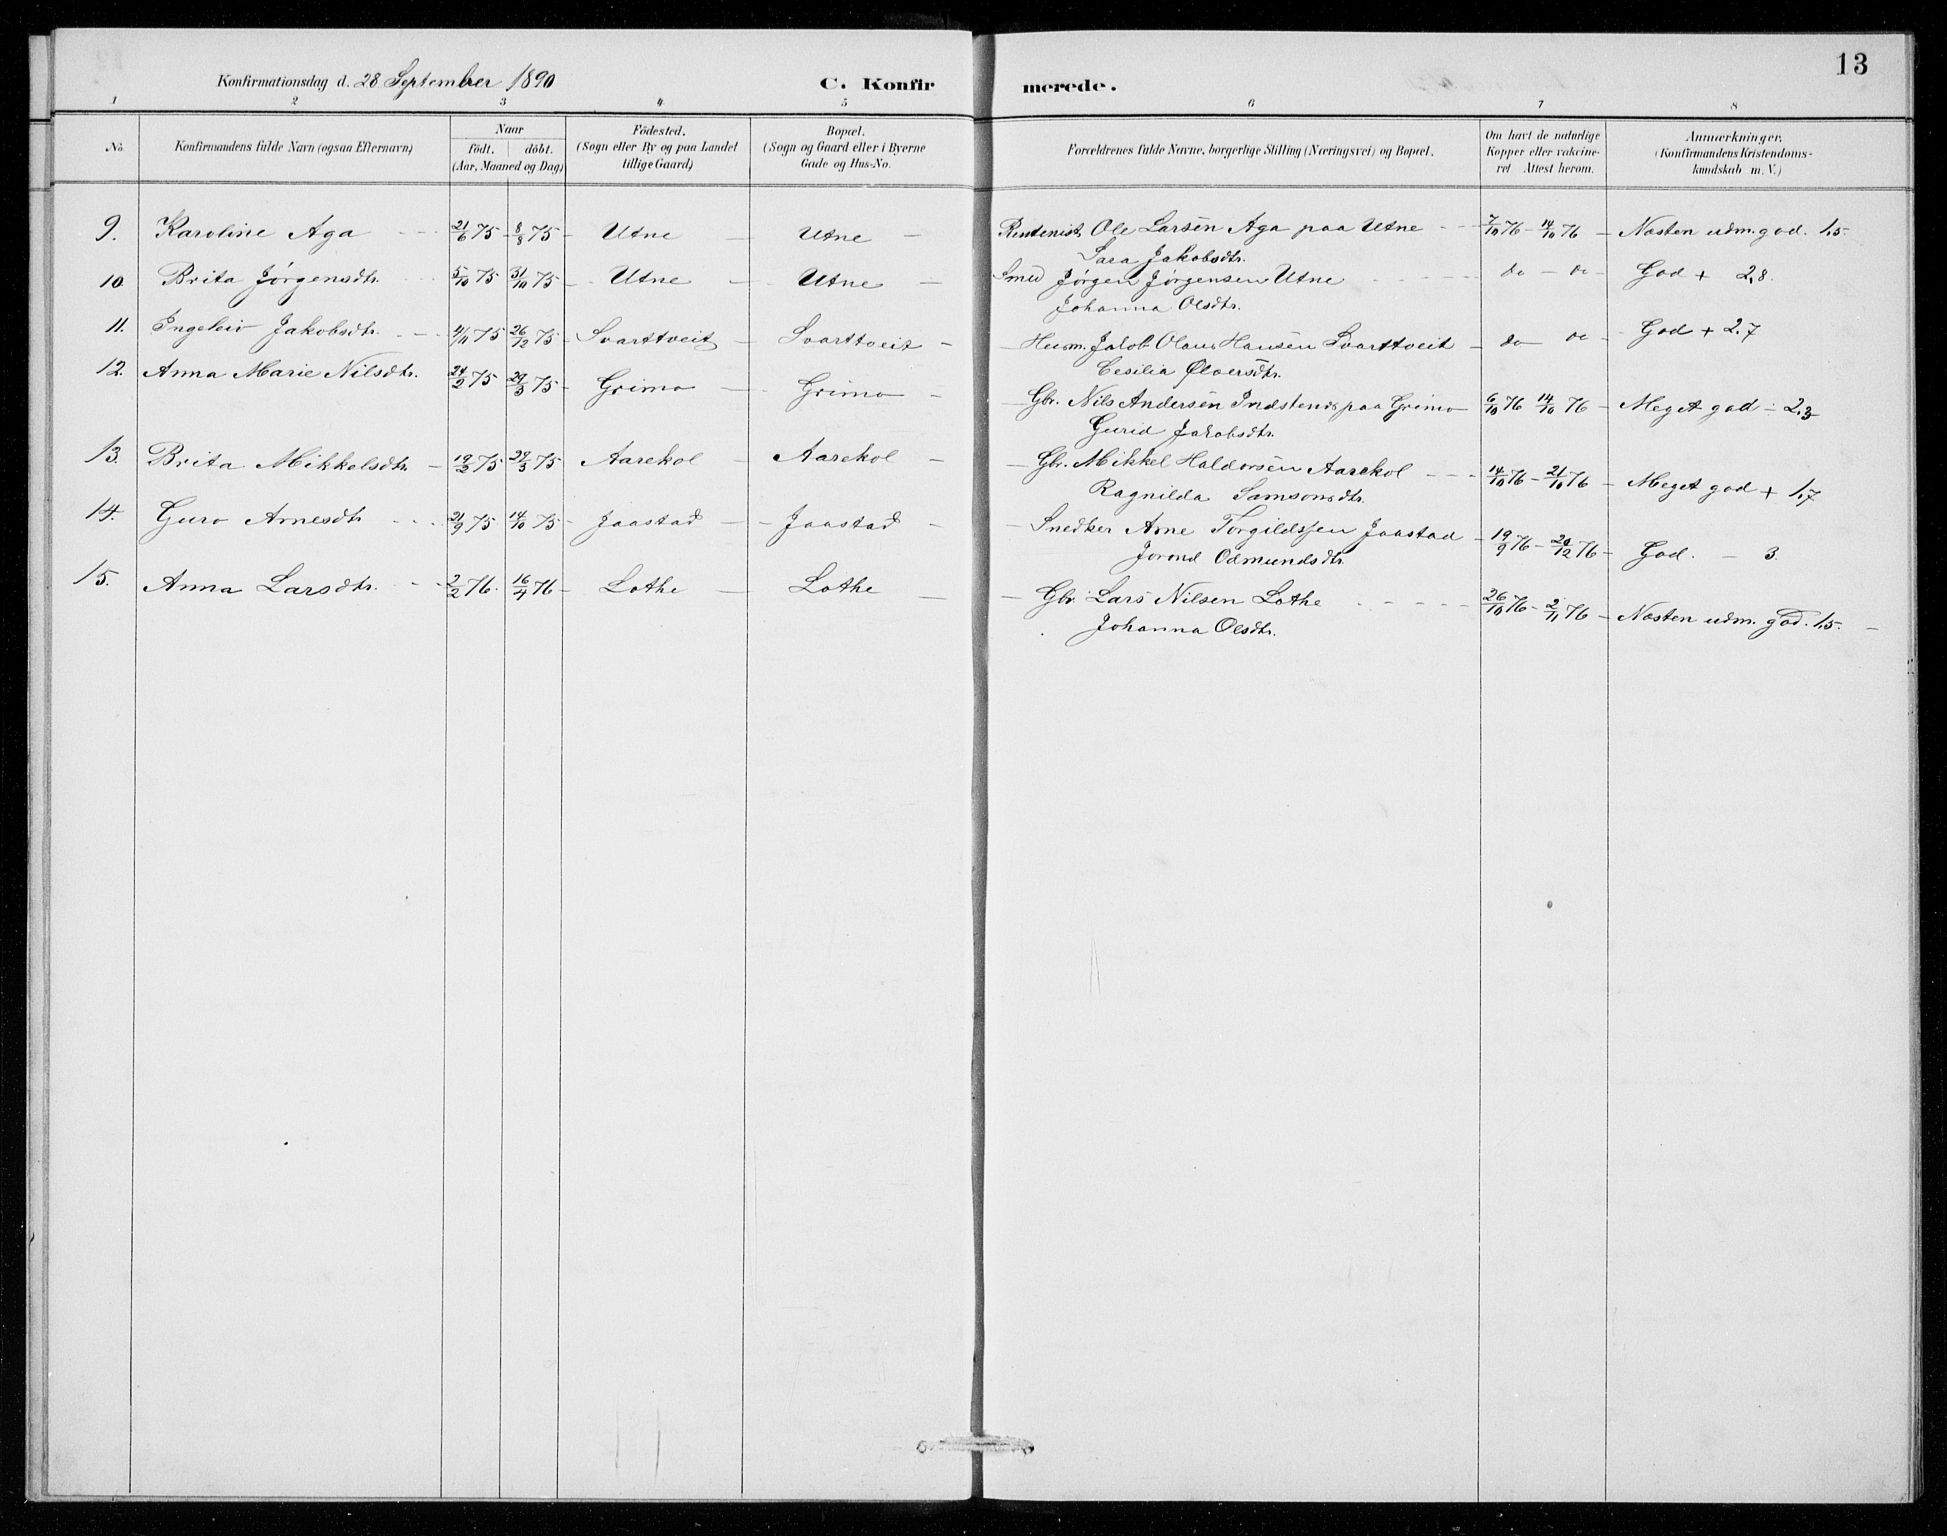 13
Konfirmationsdag d. 28 September 1890
C. Konfirmerede.
1 2 3 4 5 6 7 8
No.
Konfirmandens fulde Navn (ogsaa Efternavn)
Naar
født. døbt.
(Aar, Maaned og Dag)
Födested.
(Sogn eller By og paa Landet
tillige Gaard)
Bopæl.
(Sogn og Gaard eller i Byerne
Gade og Hus-No.
Forældrenes fulde Navne, borgerlige Stilling (Næringsvei) og Bopæl.
Om havt de naturlige
Kopper eller vakcine-
ret Attest herom.
Anmærkninger.
(Konfirmandens Kristendoms-
kundskab m. V.)
9. Karoline Aga 21/6 75 - 8/8 75 - Utne - Utne - Rentenist Ole Larsen Aga paa Utne 7/10 76 - 14/10 76 - Næsten udm. god. 1,5.
Sara Jakobsdtr.
10. Brita Jørgensdtr. 5/10 75 31/10 75 - Utne - Utne - Smed Jørgen Jørgensen Utne do - do - God + 2,8.
Johanna Olsdtr.
11. Ingeleiv Jakobsdtr. 4/11 75 26/12 75 - Svarttveit - Svarttveit - Husm. Jakob Olaus Hansen Svarttveit - do do - God + 2,7
Cesilia Ølversdtr.
12. Anna Marie Nilsdtr. 24/2 75 29/3 75 - Grimo - Grimo - Gbr. Nils Andersen Indstenes paa Grimo 6/10 76 14/10 76 - Meget god ÷ 2,3
Gurid Jakobsdtr.
13. Brita Mikkelsdtr. - 19/2 75 29/3 75 - Aarekol - Aarekol - Gbr. Mikkel Haldorsen Aarekol 14/10 76 - 21/10 76 - Meget god + 1,7
Ragnilda Samsonsdtr.
14. Guro Arnesdtr 21/9 75 14/10 75 - Jaastad - Jaastad - Snedker Arne Torgildssen Jaastad - 19/9 76 - 20/12 76 - God. - 3
Jorond Odmundsdtr.
15. Anna Larsdtr. 2/2 76. 16/4 76 - Lothe - Lothe - Gbr. Lars Nilsen Lothe 26/10 76 - 2/11 76 - Næsten udm. god. 1,5. -
Johanna Olsdtr.